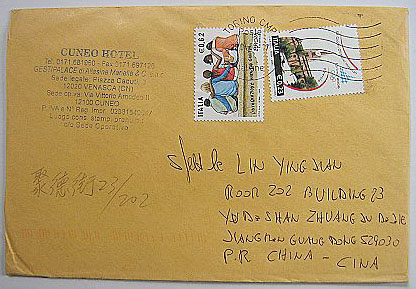 CUNEO HOTEL
Tel. 0171.681960 - Fax 0171.697128
GESTIPALACE di Allasina Mariella & C.
Sede legale: Piazza Caduti,
12020 VENASCA (CN)
Sede op.va: Via Vittorio Amedeo II
12100 CUNEO
P. IVA e N° Reg. Impr.
Luogo cons. stamp.
c/o Sede Operativa
TORINO CMP
ITALIA €0,62
ITALIA €0,23
LIN YING JIAN
ROOM 202 BUILDING 23
YU DE SHAN ZHUANG JU DE JIE
JIANGMEN GUANG DONG 529030
P.R. CHINA - CINA
聚德街23/202